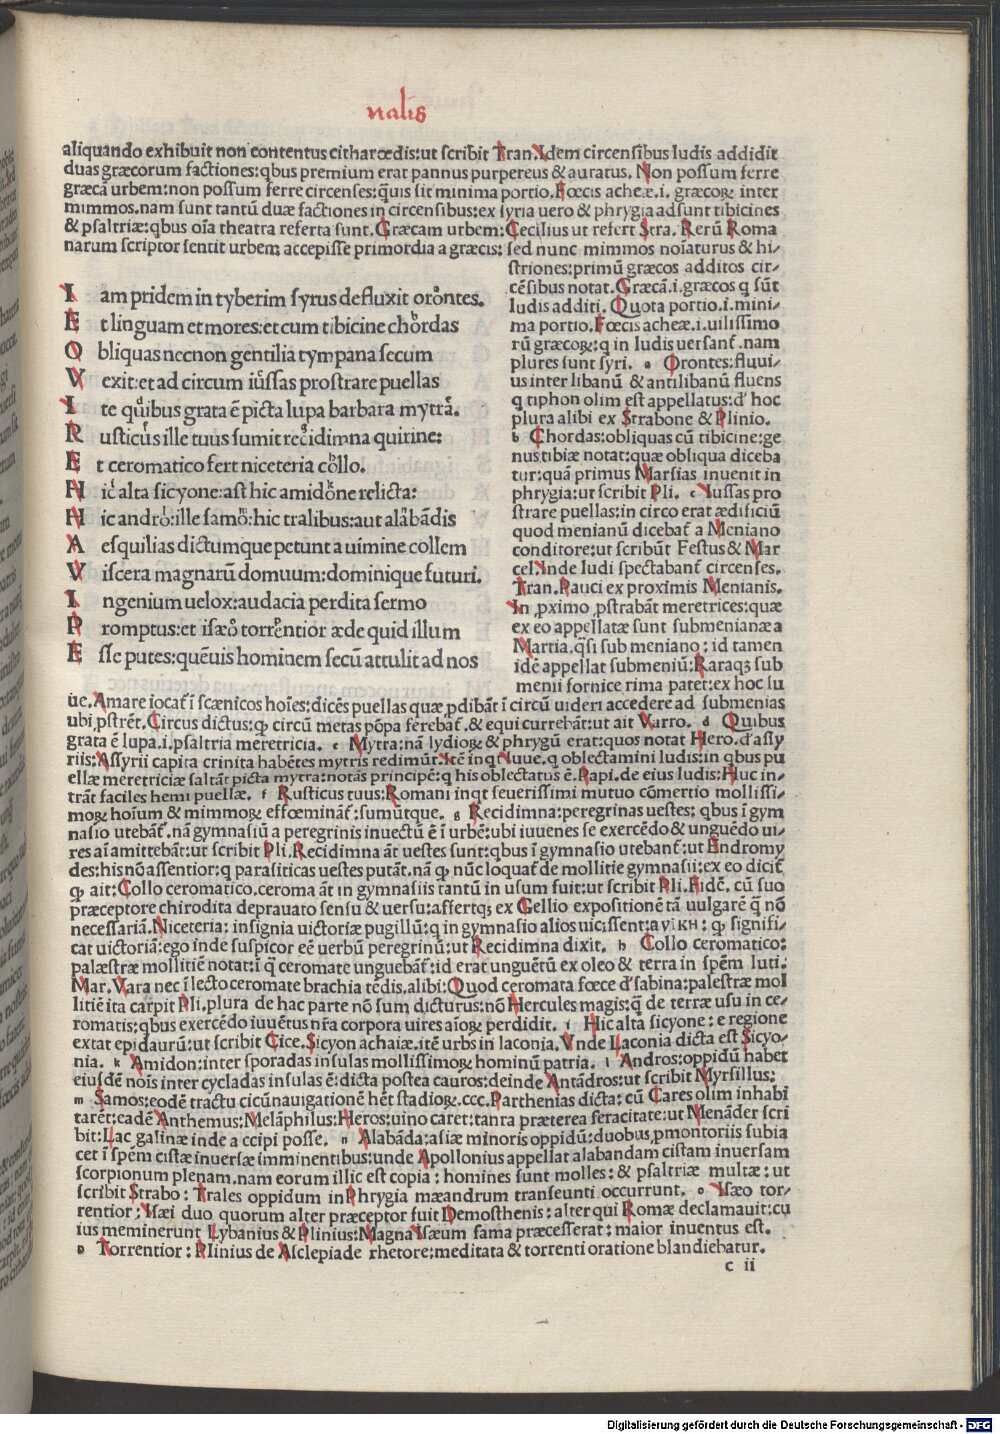 nalis
aliquando exhibuit non contentus citharœdis:ut scribit Tran.Idem circensibus ludis addidit
duas græcorum factiones:qbus premium erat pannus purpureus & auratus. Non possum ferre
græcā urbem:non possum ferre circenses:q̄uis sit minima portio. Fœcis acheæ.i. græcoꝝ inter
mimmos.nam sunt tantū duæ factiones in circensibus:ex syria uero & phrygia adsunt tibicines
& psaltriæ:qbus oīa theatra referta sunt. Græcam urbem: Cecilius ut refert Stra. Rerū Roma
narum scriptor sentit urbem accepisse primordia a græcis: sed nunc mimmos noīaturus & hi/
striones:primū græcos additos cir/
cēsibus notat. Græcā.i.græcos q sūt
ludis additi. Quota portio.i.mini/
ma portio. Fœcis acheæ.i.uilissimo
rū græcoꝝ:q in ludis uersant̄.nam
plures sunt syri. a Orontes:fluui/
us inter libanū & antilibanū fluens
q tiphon olim est appellatus:d' hoc
plura alibi ex Strabone & Plinio.
b Chordas:obliquas cū tibicine:ge
nus tibiæ notat:quæ obliqua diceba
tur:quā primus Marsias inuenit in
phrygia:ut scribit Pli. c Iussas pro
strare puellas:in circo erat ædificiū
quod menianū dicebat̄ a Meniano
conditore:ut scribūt Festus & Mar
cel.Inde ludi spectabant̄ circenses.
Tran.Pauci ex proximis Menianis.
In ꝓximo ꝓstrabāt meretrices:quæ
ex eo appellatæ sunt submenianæ a
Martia.q̄si sub meniano: id tamen
idē appellat submeniū:Raraqꝫ sub
menii fornice rima patet:ex hoc Iu
I am pridem in tyberim syrus defluxit orontes.
E t linguam et mores:et cum tibicine chordas
O bliquas necnon gentilia tympana secum
V exit:et ad circum iussas prostrare puellas
I te quibus grata ē picta lupa barbara mytra.
R usticus ille tuus sumit recidimna quirine:
E t ceromatico fert niceteria collo.
H ic alta sicyone:ast hic amidone relicta:
H ic andro:ille samo:hic tralibus:aut alabādis
A esquilias dictumque petunt a uimine collem
V iscera magnarū domuum:dominique futuri.
I ngenium uelox:audacia perdita sermo
P romptus:et isæo torrentior æde quid illum
E sse putes:quēuis hominem secū attulit ad nos
ue.Amare iocat̄ ī scænicos hoīes:dicēs puellas quæ ꝓdibāt ī circū uideri accedere ad submenias
ubi ꝓstrēt. Circus dictus:qꝫ circū metas pōpa ferebat̄.& equi currebāt:ut ait Varro. d Quibus
grata ē lupa.i.psaltria meretricia. e Mytra:nā lydioꝝ & phrygū erat:quos notat Hiero.d' assy
riis:Assyrii capita crinita habētes mytris redimūt.Itē inqt Iuue.q oblectamini ludis:in qbus pu
ellæ meretriciæ saltāt picta mytra:notās principē:q his oblectatus ē.Papi.de eius ludis:Huc in/
trāt faciles hemi puellæ. f Rusticus tuus:Romani inqt seuerissimi mutuo cōmertio mollissi/
moꝝ hoium & mimmoꝝ effœminat̄:sumūtque. g Recidimna:peregrinas uestes: qbus ī gym
nasio utebāt̄.nā gymnasiū a peregrinis inuectū ē ī urbē:ubi iuuenes se exercēdo & unguēdo ui/
res aī amittebāt:ut scribit Pli.Recidimna āt uestes sunt:qbus ī gymnasio utebant̄:ut Andromy
des:his nō assentior:q parasiticas uestes putāt.nā qꝫ nūc loquat̄ de mollitie gymnasii:ex eo dicit̄
qꝫ ait:Collo ceromatico.ceroma āt in gymnasiis tantū in usum fuit:ut scribit Pli.Fidē. cū suo
præceptore chirodita deprauato sensu & uersu:affertqꝫ ex Gellio expositionē tā uulgarē q̄ nō
necessariā.Niceteria: insignia uictoriæ pugillū:q in gymnasio alios uicissent:a νίκη: qꝫ signifi/
cat uictoriā:ego inde suspicor eē uerbū peregrinū:ut Recidimna dixit. h Collo ceromatico:
palæstræ mollitiē notat:ī q̄ ceromate unguebāt̄:id erat unguētū ex oleo & terra in spēm luti:
Mar.Vara nec ī lecto ceromate brachia tēdis.alibi:Quod ceromata fœce d' sabina:palestræ mol
litiē ita carpit Pli.plura de hac parte nō sum dicturus:nō Hercules magis:q̄ de terræ usu in ce/
romatis:qbus exercēdo iuuētus nr̄a corpora uires aīoꝝ perdidit. i Hic alta sicyone: e regione
extat epidaurū:ut scribit Cice.Sicyon achaiæ.itē urbs in laconia.Vnde Laconia dicta est Sicyo/
nia. k Amidon:inter sporadas insulas mollissimoꝝ hominū patria. l Andros:oppidū habet
eiusdē nois inter cycladas insulas ē:dicta postea cauros:deinde Antādros:ut scribit Myrsillus:
m Samos:eodē tractu cicūnauigationē hēt stadioꝝ.ccc.Parthenias dicta: cū Cares olim inhabi
tarēt:eadē Anthemus:Melāphilus:Heros:uino caret:tanta præterea feracitate:ut Menāder scri
bit:Lac galinæ inde accipi posse. n Alabāda:asiæ minoris oppidū:duobus ꝓmontoriis subia
cet ī spēm cistæ inuersæ imminentibus:unde Apollonius appellat alabandam cistam inuersam
scorpionum plenam.nam eorum illic est copia: homines sunt molles: & psaltriæ multæ: ut
scribit Strabo: Trales oppidum in Phrygia mæandrum transeunti occurrunt. o Isæo tor/
rentior: Isæi duo quorum alter præceptor fuit Demosthenis: alter qui Romæ declamauit:cu
ius meminerunt Lybanius & Plinius:Magna Isæum fama præcesserat: maior inuentus est.
p Torrentior: Plinius de Asclepiade rhetore:meditata & torrenti oratione blandiebatur.
c ii
Digitalisierung gefördert durch die Deutsche Forschungsgemeinschaft - DFG